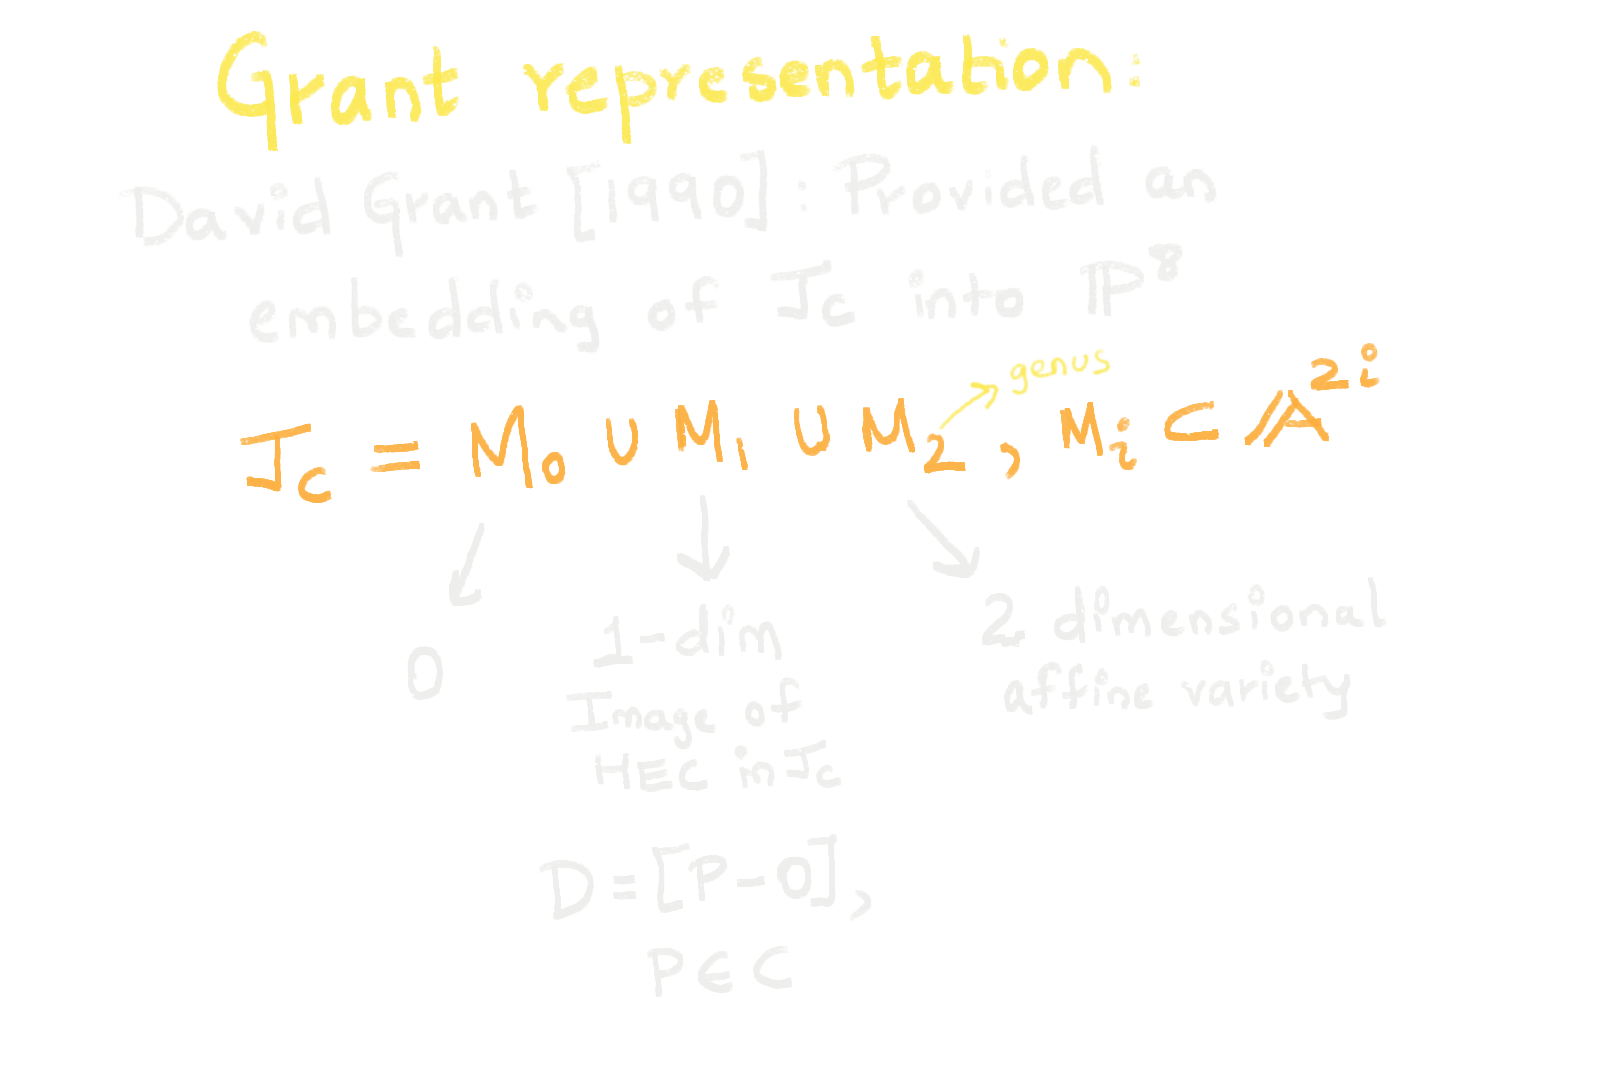 Grant representation:
David Grant [1990] : Provided an
embedding of J_C into ℙ^8
genus
J_C = M_0 ∪ M_1 ∪ M_2 , M_i ⊂ 𝔸^{2i}
0
1-dim
Image of
HEC in J_C
D = [P-O],
P ∈ C
2 dimensional
affine variety